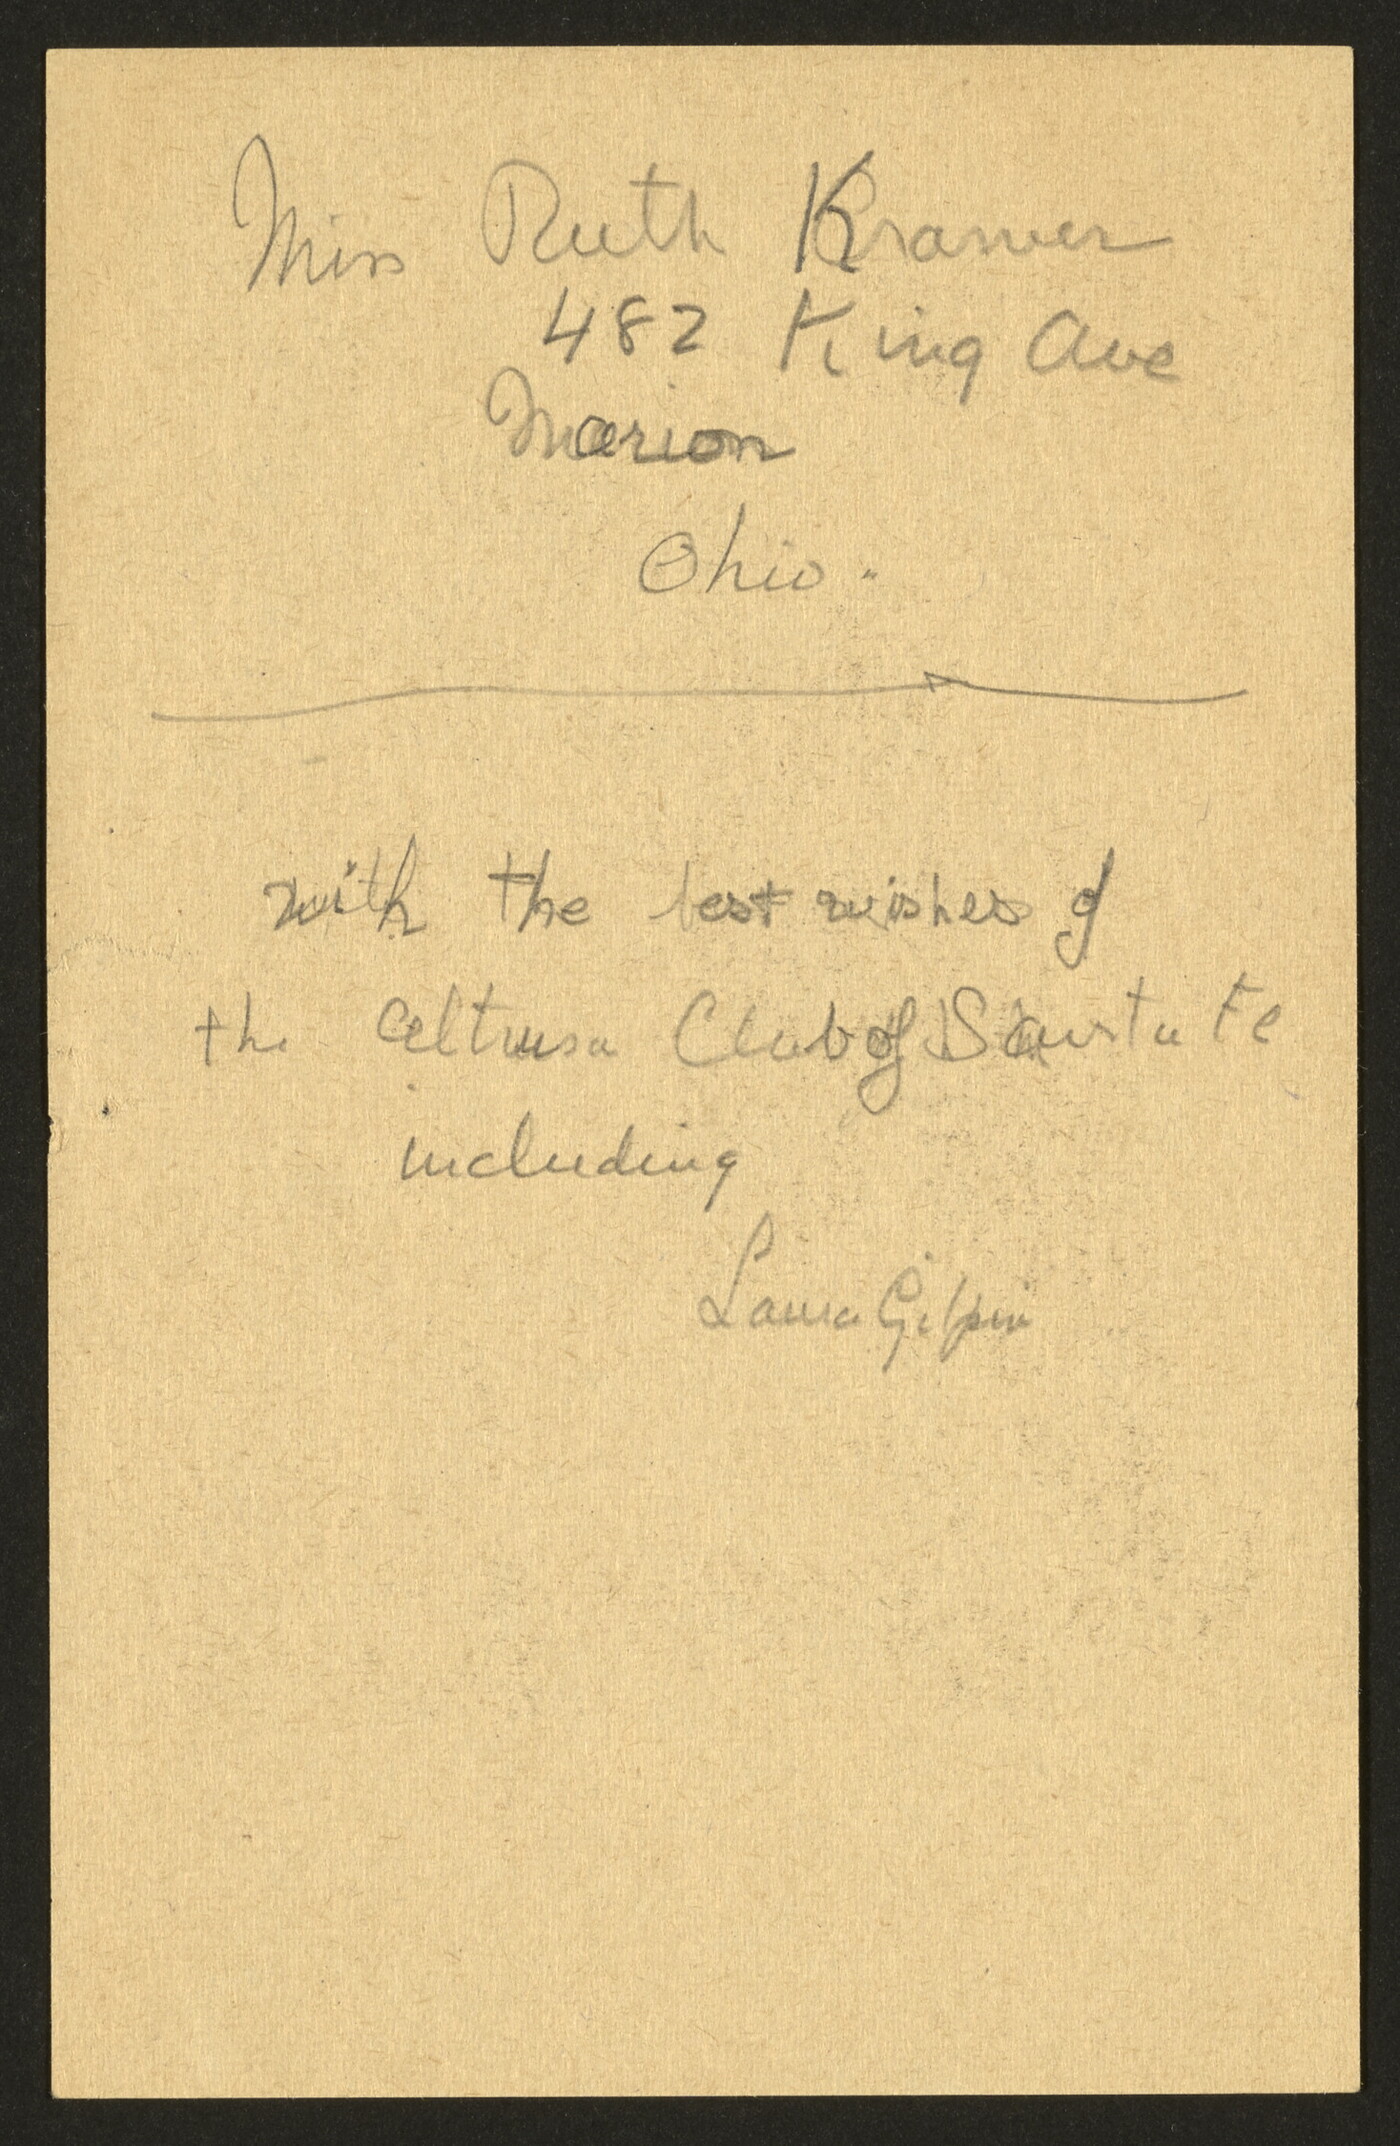 Miss Ruth Kramer
482 King Ave
Marion
Ohio.
with the best wishes of
the Altrusa Club of Santa Fe
including
Laura Gilpin